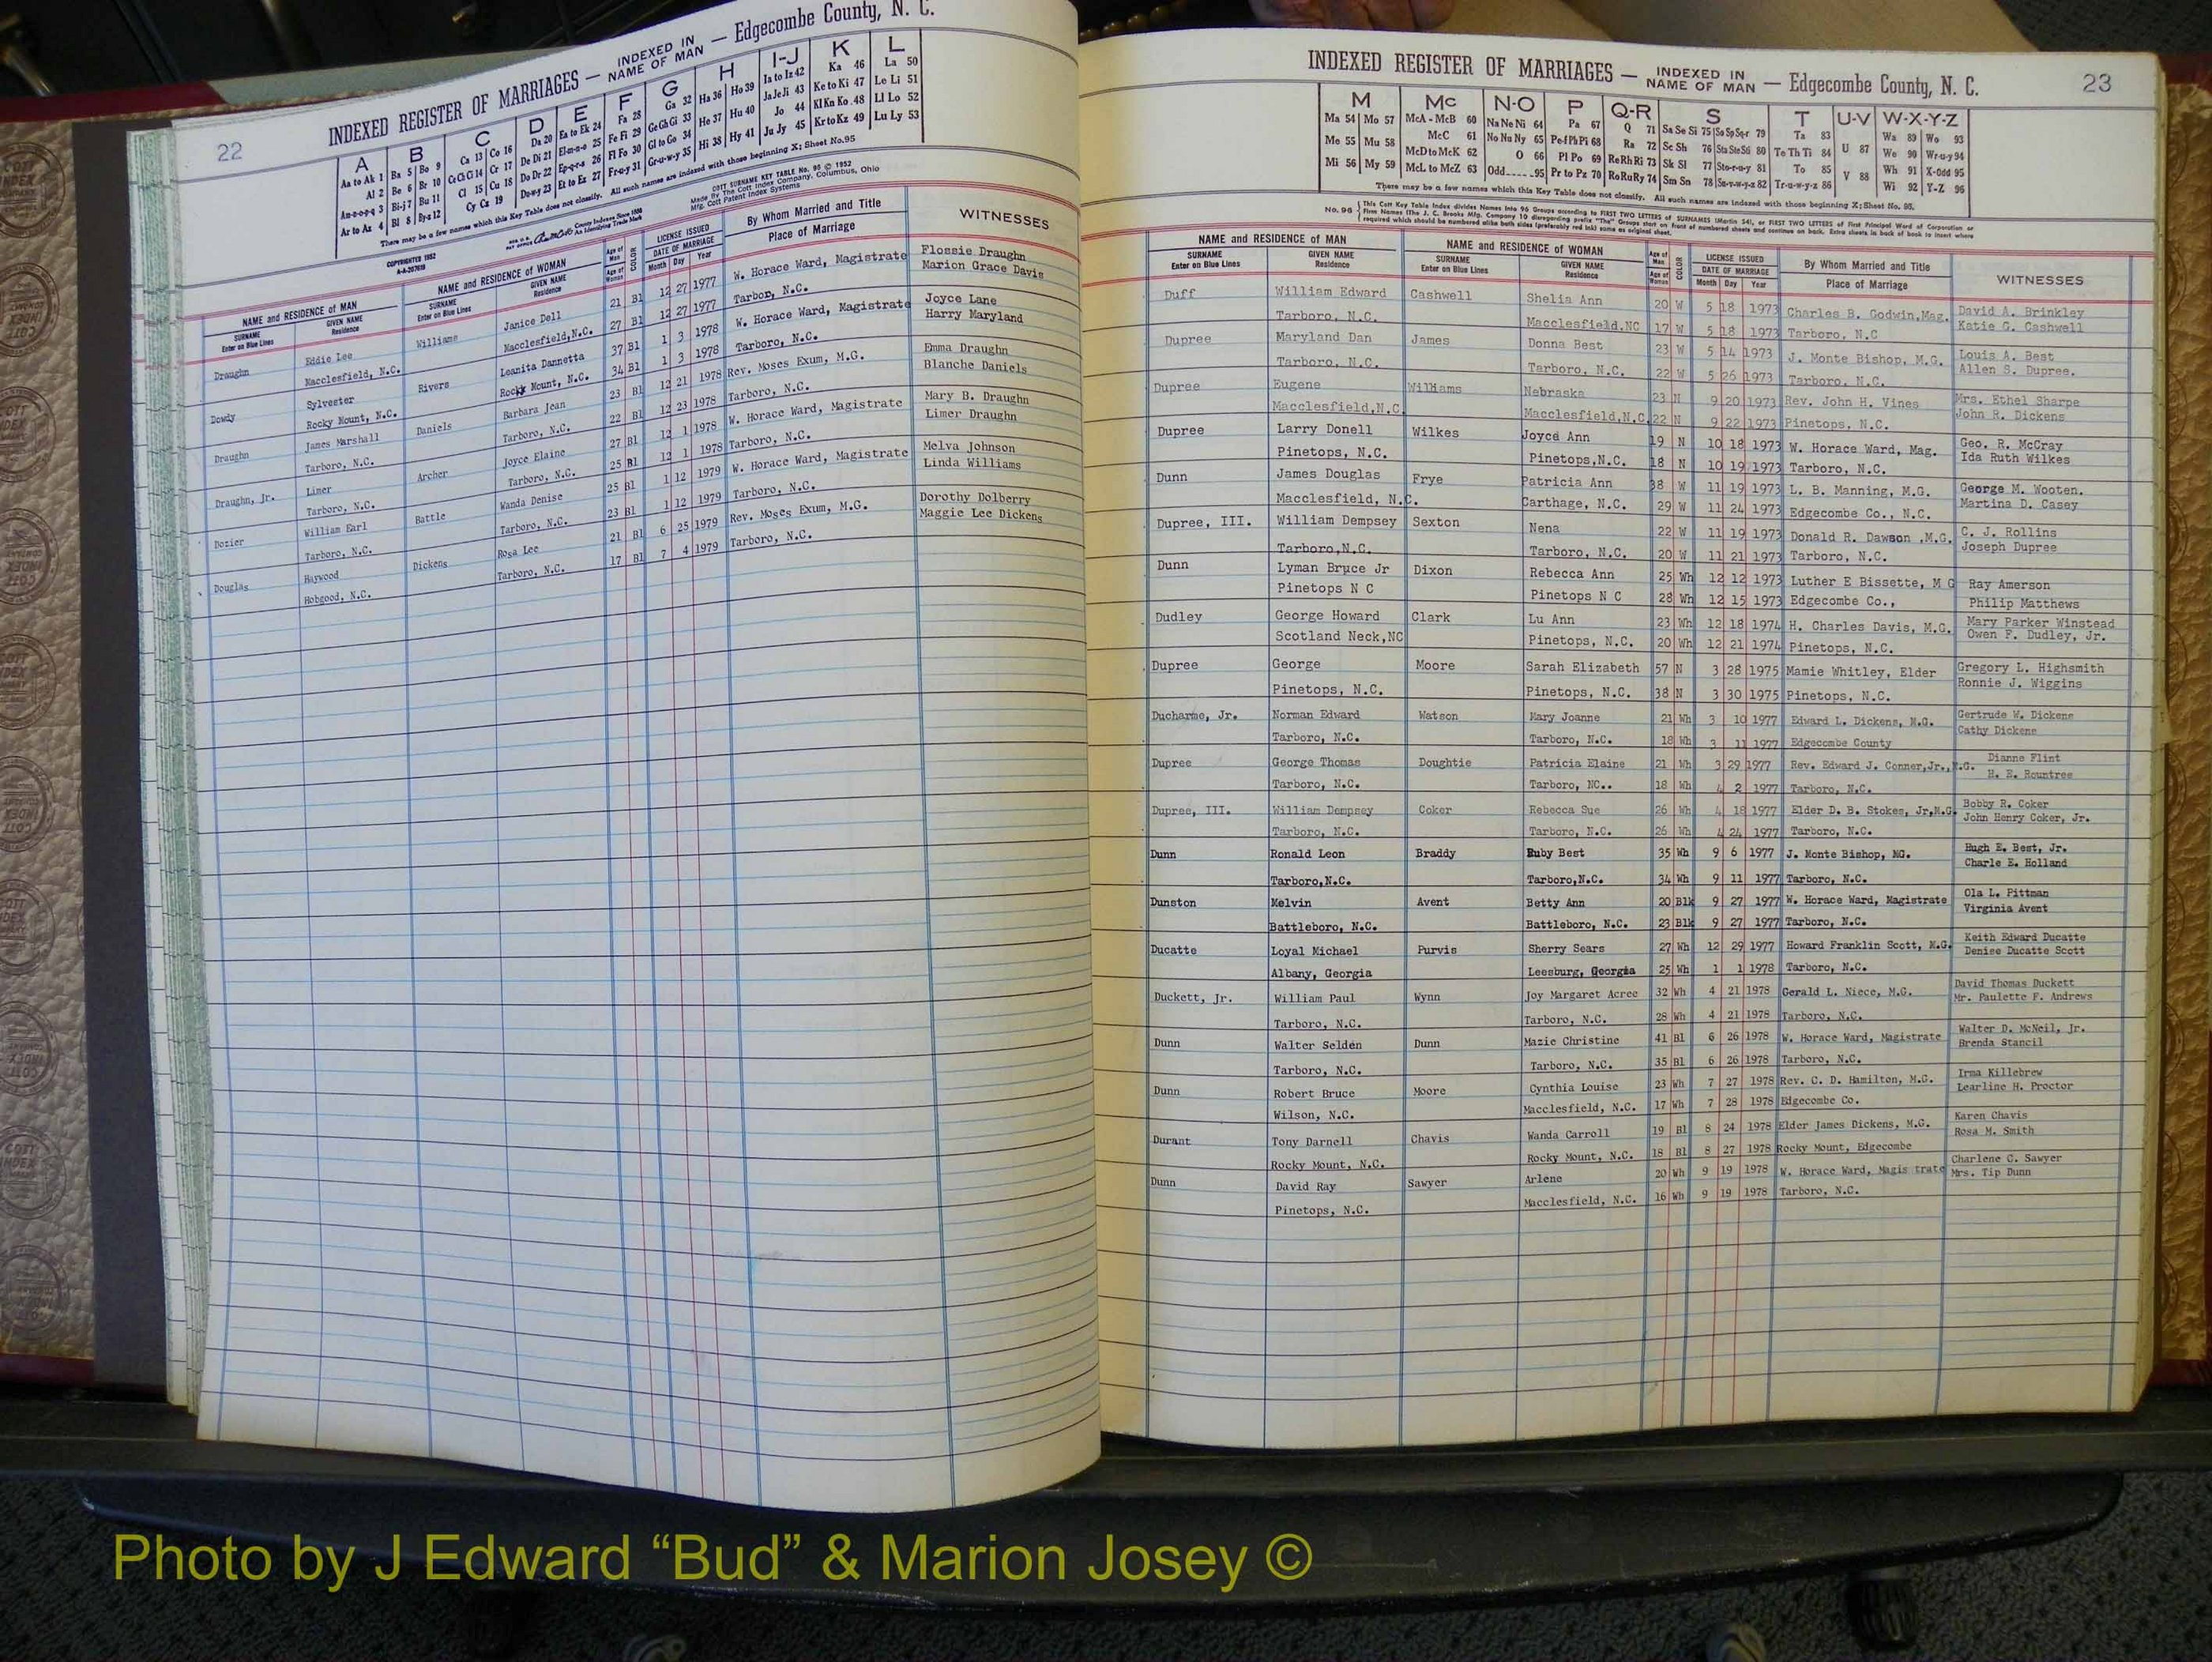 22
INDEXED REGISTER OF MARRIAGES — INDEXED IN NAME OF MAN — Edgecombe County, N. C.
A B C D E F G H I-J K L
Aa to Ak 1 Ba 5 Bo 9 Ca 13 Co 16 Da 20 Ea to Ek 24 Fa 28 Ga 32 Ha 36 Ho 39 Ia to Iz 42 Ka 46 La 50
Al 2 Be 6 Br 10 Ce Ch Ci 14 Cr 17 De Di 21 El-m-n-o 25 Fe Fi 29 Ge Gh Gi 33 He 37 Hu 40 Ja Je Ji 43 Ke to Ki 47 Le Li 51
Am-n-o-p-q 3 Bi-j 7 Bu 11 Cl 15 Cu 18 Do Dr 22 Ep-q-r-s 26 Fl Fo 30 Gl to Go 34 Hi 38 Hy 41 Jo 44 Kl Kn Ko 48 Ll Lo 52
Ar to Az 4 Bl 8 By-z 12 Cy Cz 19 Du-w-y 23 Et to Ez 27 Fr-u-y 31 Gr-u-w-y 35 Ju Jy 45 Kr to Kz 49 Lu Ly 53
There may be a few names which this Key Table does not classify. All such names are indexed with those beginning X; Sheet No. 95
COPYRIGHTED 1952
COTT SURNAME KEY TABLE No. 95 © 1952
Made By The Cott Index Company, Columbus, Ohio
Mfg. Cott Patent Index Systems
NAME and RESIDENCE of MAN NAME and RESIDENCE of WOMAN Age of Man Age of Woman COLOR LICENSE ISSUED DATE OF MARRIAGE By Whom Married and Title Place of Marriage WITNESSES
SURNAME Enter on Blue Lines GIVEN NAME Residence SURNAME Enter on Blue Lines GIVEN NAME Residence Month Day Year
Draughn Eddie Lee Williams Janice Dell 21 Bl 12 27 1977 W. Horace Ward, Magistrate Flossie Draughn
Macclesfield, N.C. Macclesfield,N.C. 27 Bl 12 27 1977 Tarbor, N.C. Marion Grace Davis
Dowdy Sylvester Rivers Leanita Dannetta 37 Bl 1 3 1978 W. Horace Ward, Magistrate Joyce Lane
Rocky Mount, N.C. Rock Mount, N.C. 34 Bl 1 3 1978 Tarboro, N.C. Harry Maryland
Draughn James Marshall Daniels Barbara Jean 23 Bl 12 21 1978 Rev. Moses Exum, M.G. Emma Draughn
Tarboro, N.C. Tarboro, N.C. 22 Bl 12 23 1978 Tarboro, N.C. Blanche Daniels
Draughn, Jr. Limer Archer Joyce Elaine 27 Bl 12 1 1978 W. Horace Ward, Magistrate Mary B. Draughn
Tarboro, N.C. Tarboro, N.C. 25 Bl 12 1 1978 Tarboro, N.C. Limer Draughn
Dozier William Earl Battle Wanda Denise 25 Bl 1 12 1979 W. Horace Ward, Magistrate Melva Johnson
Tarboro, N.C. Tarboro, N.C. 23 Bl 1 12 1979 Tarboro, N.C. Linda Williams
Douglas Haywood Dickens Rosa Lee 21 Bl 6 25 1979 Rev. Moses Exum, M.G. Dorothy Dolberry
Hobgood, N.C. Tarboro, N.C. 17 Bl 7 4 1979 Tarboro, N.C. Maggie Lee Dickens
INDEXED REGISTER OF MARRIAGES — INDEXED IN NAME OF MAN — Edgecombe County, N. C. 23
M Mc N-O P Q-R S T U-V W-X-Y-Z
Ma 54 Mo 57 McA - McB 60 Na Ne Ni 64 Pa 67 Q 71 Sa Se Si 75 So Sp Sq-r 79 Ta 83 U 87 Wa 89 Wo 93
Me 55 Mu 58 McC 61 No Nu Ny 65 Pe-f Ph Pi 68 Ra 72 Sc Sh 76 Sta Ste Sti 80 Te Th Ti 84 V 88 We 90 Wr-u-y 94
Mi 56 My 59 McD to McK 62 O 66 Pl Po 69 Re Rh Ri 73 Sk Sl 77 Sto-r-u-y 81 To 85 Wh 91 X-Odd 95
McL to McZ 63 Odd.....95 Pr to Pz 70 Ro Ru Ry 74 Sm Sn 78 Su-v-w-y-z 82 Tr-u-w-y-z 86 Wi 92 Y-Z 96
There may be a few names which this Key Table does not classify. All such names are indexed with those beginning X; Sheet No. 95.
NAME and RESIDENCE of MAN NAME and RESIDENCE of WOMAN Age of Man Age of Woman COLOR LICENSE ISSUED DATE OF MARRIAGE By Whom Married and Title Place of Marriage WITNESSES
SURNAME Enter on Blue Lines GIVEN NAME Residence SURNAME Enter on Blue Lines GIVEN NAME Residence Month Day Year
Duff William Edward Cashwell Shelia Ann 20 W 5 18 1973 Charles B. Godwin,Mag. David A. Brinkley
Tarboro, N.C. Macclesfield,NC 17 W 5 18 1973 Tarboro, N.C Katie G. Cashwell
Dupree Maryland Dan James Donna Best 23 W 5 14 1973 J. Monte Bishop, M.G. Louis A. Best
Tarboro, N.C. Tarboro, N.C. 22 W 5 26 1973 Tarboro, N.C. Allen S. Dupree.
Dupree Eugene Williams Nebraska 23 N 9 20 1973 Rev. John H. Vines Mrs. Ethel Sharpe
Macclesfield,N.C. Macclesfield,N.C. 22 N 9 22 1973 Pinetops, N.C. John R. Dickens
Dupree Larry Donell Wilkes Joyce Ann 19 N 10 18 1973 W. Horace Ward, Mag. Geo. R. McCray
Pinetops, N.C. Pinetops,N.C. 18 N 10 19 1973 Tarboro, N.C. Ida Ruth Wilkes
Dunn James Douglas Frye Patricia Ann 38 W 11 19 1973 L. B. Manning, M.G. George M. Wooten.
Macclesfield, N.C. Carthage, N.C. 29 W 11 24 1973 Edgecombe Co., N.C. Martina D. Casey
Dupree, III. William Dempsey Sexton Nena 22 W 11 19 1973 Donald R. Dawson ,M.G. C. J. Rollins
Tarboro,N.C. Tarboro, N.C. 20 W 11 21 1973 Tarboro, N.C. Joseph Dupree
Dunn Lyman Bruce Jr Dixon Rebecca Ann 25 Wh 12 12 1973 Luther E Bissette, M G Ray Amerson
Pinetops N C Pinetops N C 28 Wh 12 15 1973 Edgecombe Co., Philip Matthews
Dudley George Howard Clark Lu Ann 23 Wh 12 18 1974 H. Charles Davis, M.G. Mary Parker Winstead
Scotland Neck,NC Pinetops, N.C. 20 Wh 12 21 1974 Pinetops, N.C. Owen F. Dudley, Jr.
Dupree George Moore Sarah Elizabeth 57 N 3 28 1975 Mamie Whitley, Elder Gregory L. Highsmith
Pinetops, N.C. Pinetops, N.C. 38 N 3 30 1975 Pinetops, N.C. Ronnie J. Wiggins
Ducharme, Jr. Norman Edward Watson Mary Joanne 21 Wh 3 10 1977 Edward L. Dickens, M.G. Gertrude W. Dickens
Tarboro, N.C. Tarboro, N.C. 18 Wh 3 11 1977 Edgecombe County Cathy Dickens
Dupree George Thomas Doughtie Patricia Elaine 21 Wh 3 29 1977 Rev. Edward J. Conner,Jr., M.G. Dianne Flint
Tarboro, N.C. Tarboro, NC.. 18 Wh 4 2 1977 Tarboro, N.C. H. E. Rountree
Dupree, III. William Dempsey Coker Rebecca Sue 26 Wh 4 18 1977 Elder D. B. Stokes, Jr,M.G. Bobby R. Coker
Tarboro, N.C. Tarboro, N.C. 26 Wh 4 24 1977 Tarboro, N.C. John Henry Coker, Jr.
Dunn Ronald Leon Braddy Ruby Best 35 Wh 9 6 1977 J. Monte Bishop, MG. Hugh E. Best, Jr.
Tarboro,N.C. Tarboro,N.C. 34 Wh 9 11 1977 Tarboro, N.C. Charle E. Holland
Dunston Melvin Avent Betty Ann 20 Blk 9 27 1977 W. Horace Ward, Magistrate Ola L. Pittman
Battleboro, N.C. Battleboro, N.C. 23 Blk 9 27 1977 Tarboro, N.C. Virginia Avent
Ducatte Loyal Michael Purvis Sherry Sears 27 Wh 12 29 1977 Howard Franklin Scott, M.G. Keith Edward Ducatte
Albany, Georgia Leesburg, Georgia 25 Wh 1 1 1978 Tarboro, N.C. Denise Ducatte Scott
Duckett, Jr. William Paul Wynn Joy Margaret Acree 32 Wh 4 21 1978 Gerald L. Niece, M.G. David Thomas Duckett
Tarboro, N.C. Tarboro, N.C. 28 Wh 4 21 1978 Tarboro, N.C. Mr. Paulette F. Andrews
Dunn Walter Selden Dunn Mazie Christine 41 Bl 6 26 1978 W. Horace Ward, Magistrate Walter D. McNeil, Jr.
Tarboro, N.C. Tarboro, N.C. 35 Bl 6 26 1978 Tarboro, N.C. Brenda Stancil
Dunn Robert Bruce Moore Cynthia Louise 23 Wh 7 27 1978 Rev. C. D. Hamilton, M.G. Irma Killebrew
Wilson, N.C. Macclesfield, N.C. 17 Wh 7 28 1978 Edgecombe Co. Learline H. Proctor
Durant Tony Darnell Chavis Wanda Carroll 19 Bl 8 24 1978 Elder James Dickens, M.G. Karen Chavis
Rocky Mount, N.C. Rocky Mount, N.C. 18 Bl 8 27 1978 Rocky Mount, Edgecombe Rosa M. Smith
Dunn David Ray Sawyer Arlene 20 Wh 9 19 1978 W. Horace Ward, Magis trate Charlene C. Sawyer
Pinetops, N.C. Macclesfield, N.C. 16 Wh 9 19 1978 Tarboro, N.C. Mrs. Tip Dunn
Photo by J Edward “Bud” & Marion Josey ©